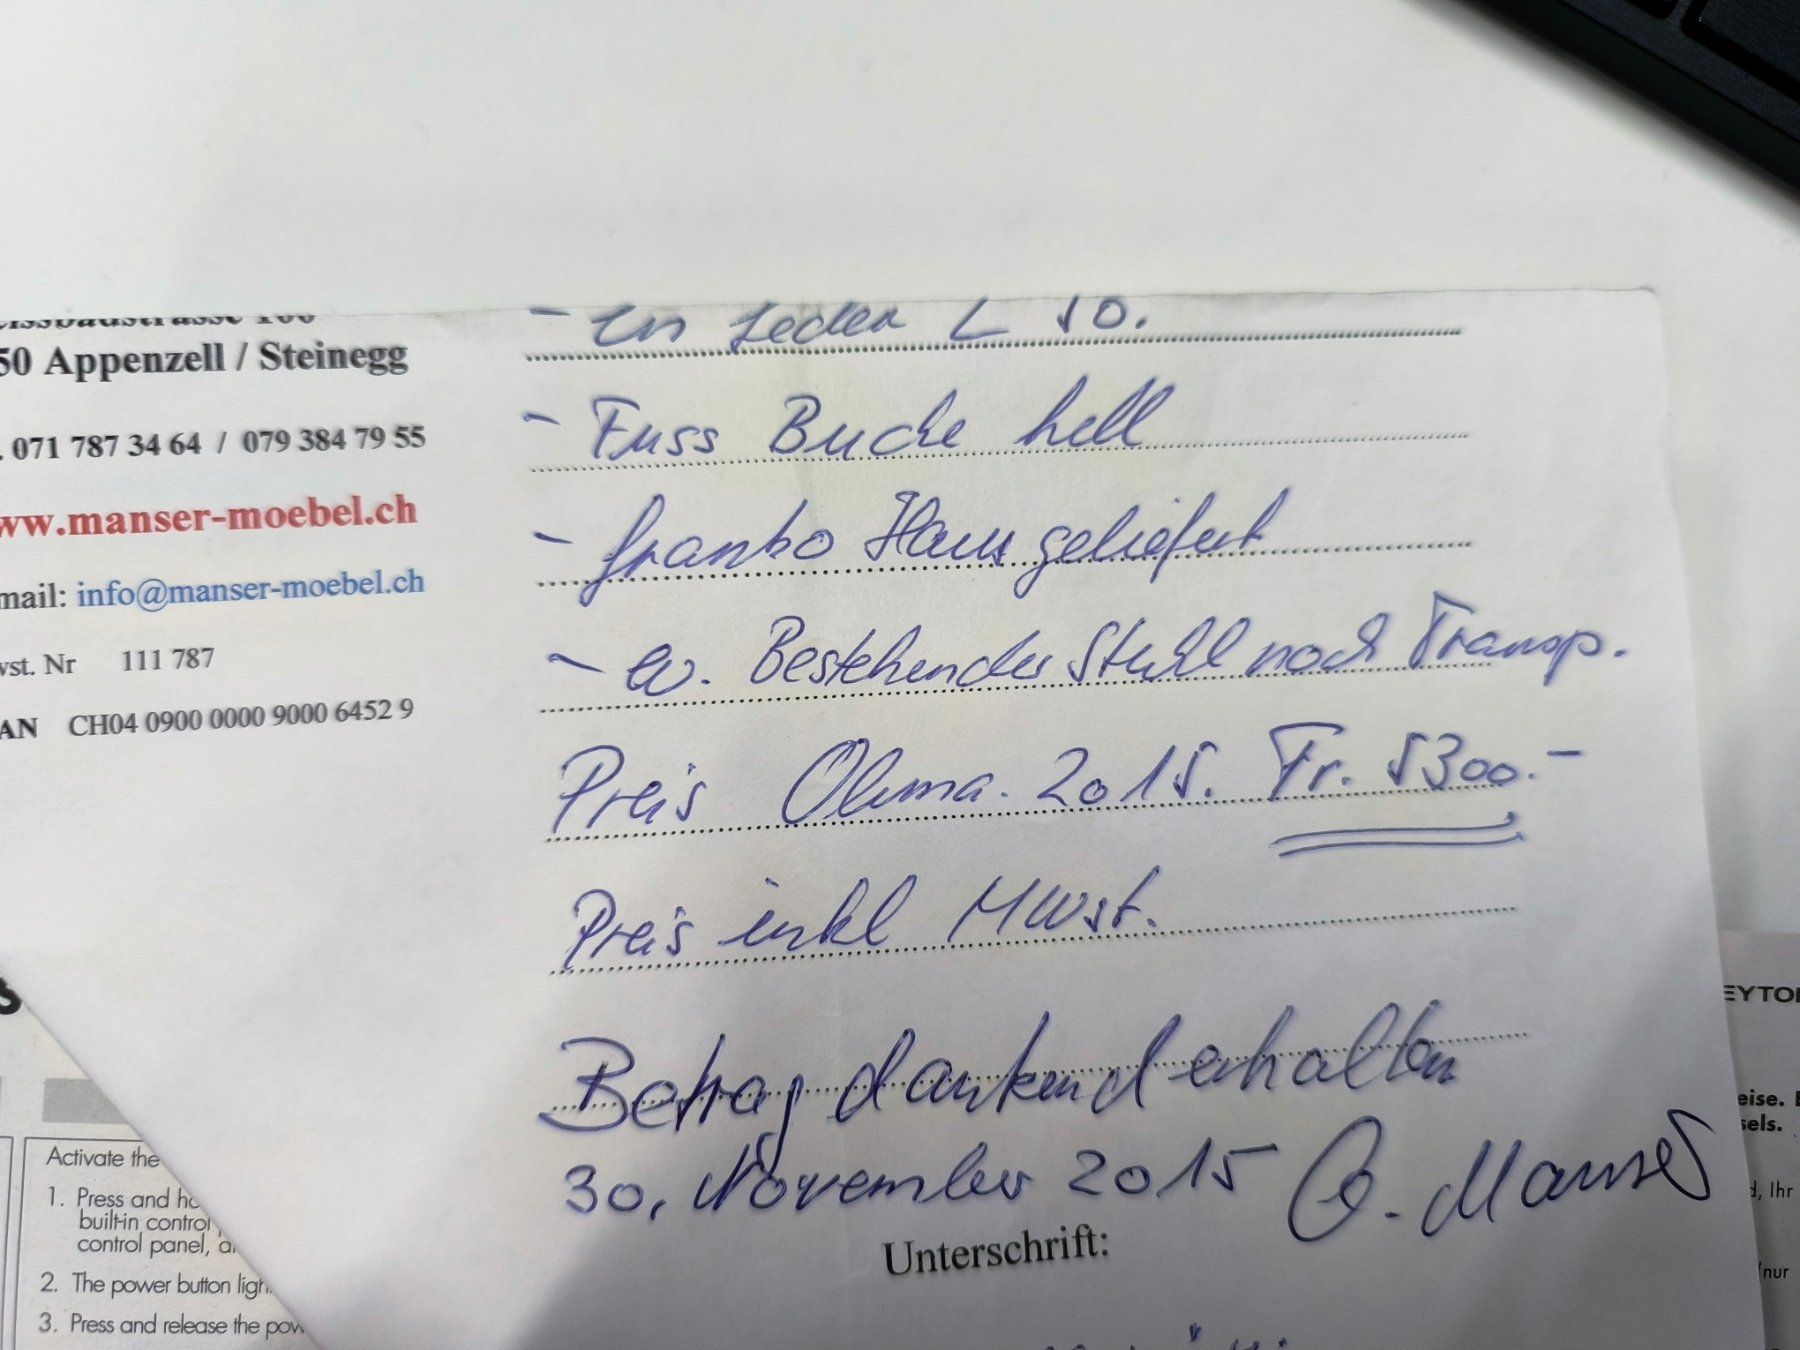 50 Appenzell / Steinegg
. 071 787 34 64 / 079 384 79 55
ww.manser-moebel.ch
mail: info@manser-moebel.ch
wst. Nr 111 787
AN CH04 0900 0000 9000 6452 9
- in Leder L 50.
- Fuss Buche hell
- franko Haus geliefert
- ev. Bestehender Stuhl noch Transp.
Preis Olma. 2015. Fr. 5300.-
Preis inkl MWst.
Betrag dankend erhalten
30. November 2015 Q. Manser
Unterschrift:
Activate the
1. Press and ho
built-in control
control panel, a
2. The power button ligh
3. Press and release the pow
EYTON
eise.
sels.
d, Ihr
/nur